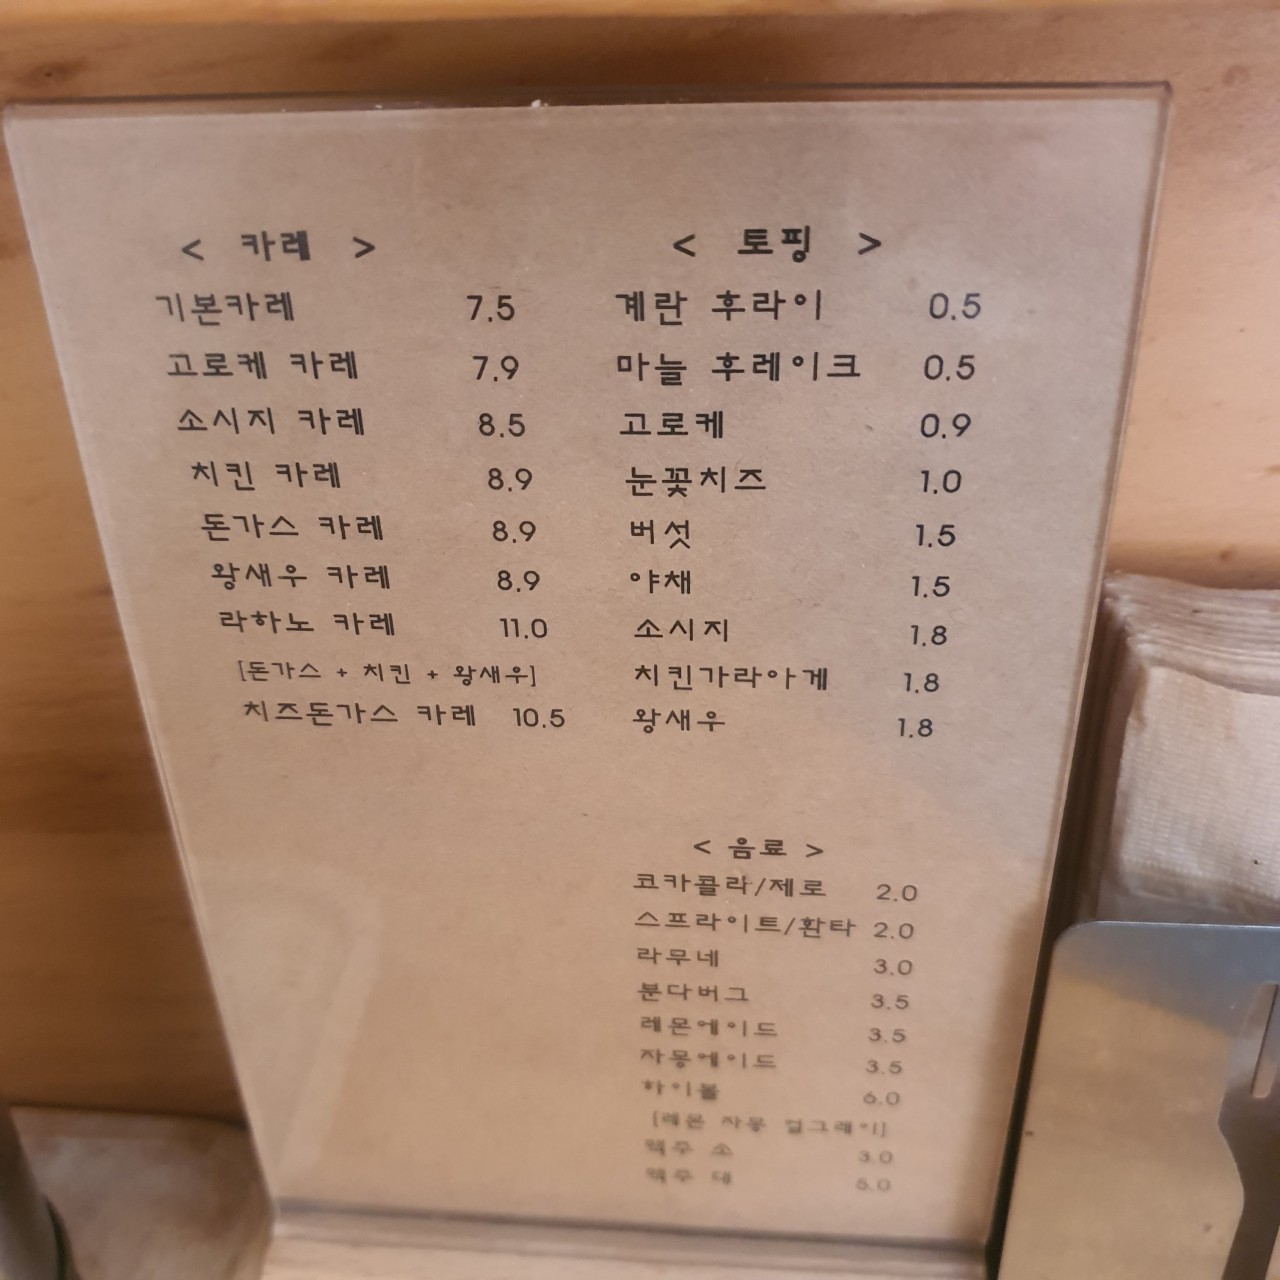 < 카레 >
기본카레 7.5
고로케 카레 7.9
소시지 카레 8.5
치킨 카레 8.9
돈가스 카레 8.9
왕새우 카레 8.9
라하노 카레 11.0
[돈가스 + 치킨 + 왕새우]
치즈돈가스 카레 10.5
< 토핑 >
계란 후라이 0.5
마늘 후레이크 0.5
고로케 0.9
눈꽃치즈 1.0
버섯 1.5
야채 1.5
소시지 1.8
치킨가라아게 1.8
왕새우 1.8
< 음료 >
코카콜라/제로 2.0
스프라이트/환타 2.0
라무네 3.0
분다버그 3.5
레몬에이드 3.5
자몽에이드 3.5
하이볼 6.0
[레몬 자몽 얼그레이]
맥주 소 3.0
맥주 대 5.0